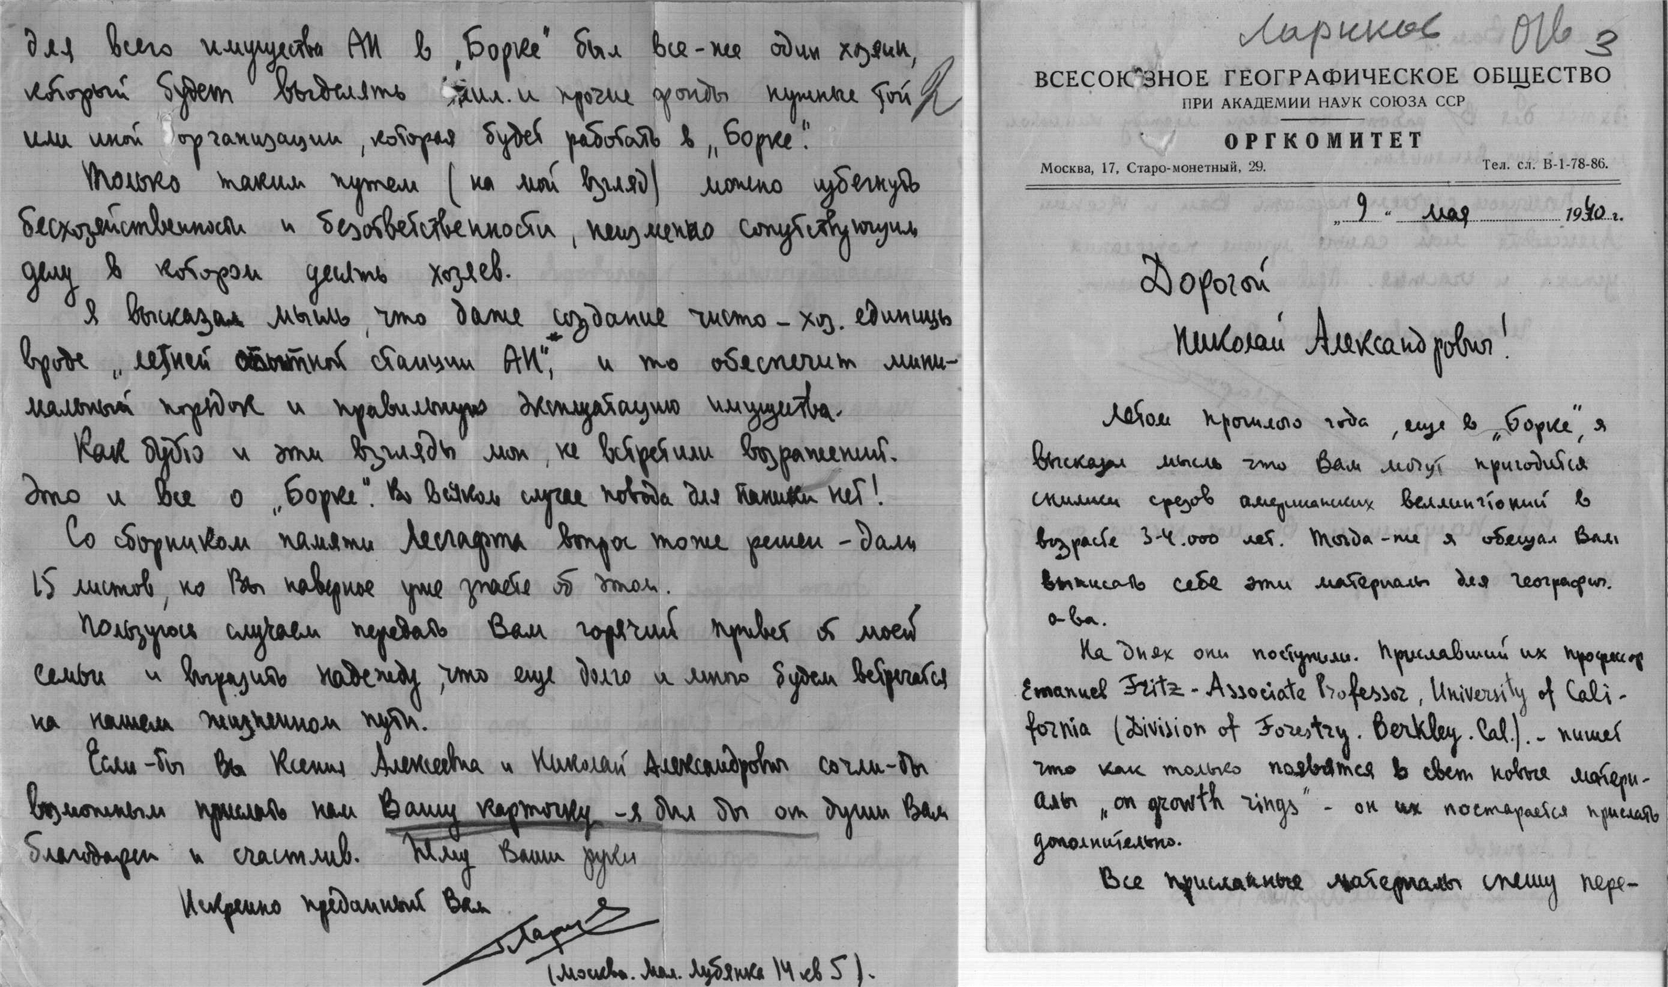 для всего имущества АН в „Борке" был все-же один хозяин,
который будет выделять жил. и прочие фонды нужные той
или иной организации, которая будет работать в „Борке".
Только таким путем (на мой взгляд) можно избегнуть
бесхозяйственности и безответственности, неизменно сопутствующим
делу в котором десять хозяев.
Я высказал мысль, что даже создание чисто-хоз. единицы
вроде „летней опытной станции АН", и то обеспечит мини-
мальный порядок и правильную эксплуатацию имущества.
Как будто и эти взгляды мои, не встретили возражений.
Это и все о „Борке". Во всяком случае повода для паники нет!
Со сборником памяти Лесгафта вопрос тоже решен - дали
15 листов, но Вы наверное уже знаете об этом.
Пользуюсь случаем передать Вам горячий привет от моей
семьи и выразить надежду, что еще долго и много будем встречаться
на нашем жизненном пути.
Если-бы Вы Ксения Алексеевна и Николай Александрович сочли-бы
возможным прислать нам Вашу карточку - я был бы от души Вам
благодарен и счастлив. Жму Ваши руки
Искренно преданный Вам
(Москва. Мал. Лубянка 14 кв 5).
2
Лариков
3
ВСЕСОЮЗНОЕ ГЕОГРАФИЧЕСКОЕ ОБЩЕСТВО
ПРИ АКАДЕМИИ НАУК СОЮЗА ССР
ОРГКОМИТЕТ
Москва, 17, Старо-монетный, 29. Тел. сл. В-1-78-86.
„9" мая 1940 г.
Дорогой
Николай Александрович!
Летом прошлого года, еще в „Борке", я
высказал мысль что Вам могут пригодится
снимки срезов американских веллингтоний в
возрасте 3-4.000 лет. Тогда-же я обещал Вам
выписать себе эти материалы для географич.
о-ва.
На днях они поступили. Приславший их профессор
Emanuel Fritz - Associate Professor, University of Cali-
fornia (Division of Forestry. Berkley. Cal.). - пишет
что как только появятся в свет новые матери-
алы „on growth rings" - он их постарается прислать
дополнительно.
Все присланные материалы спешу пере-